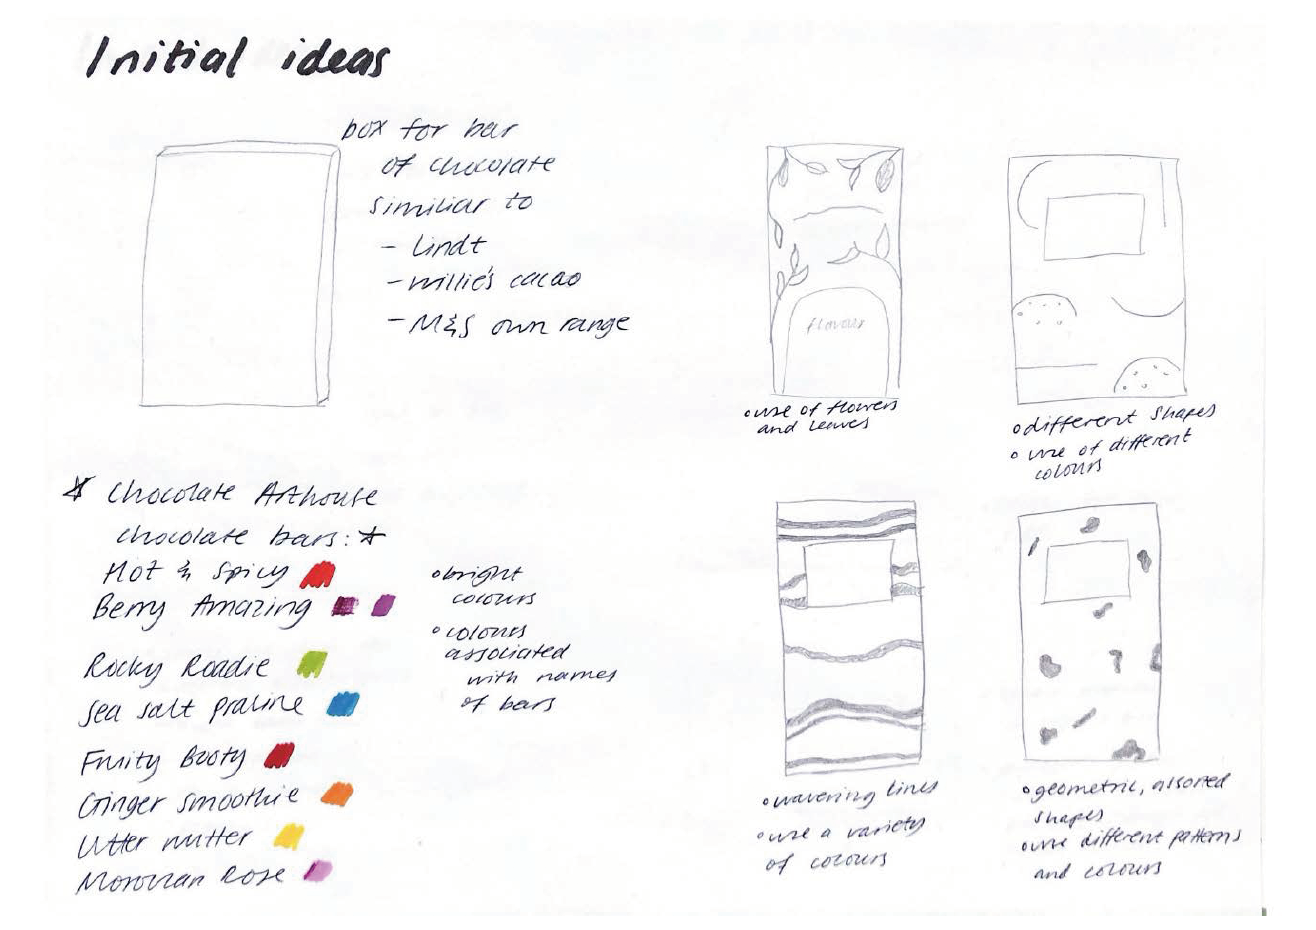 Initial ideas
box for bar
of chocolate
similiar to
- Lindt
- Willie's cacao
- M&S own range
flavour
• use of flowers
and leaves
• different shapes
• use of different
colours
* Chocolate Arthouse
chocolate bars: *
Hot & Spicy
Berry Amazing
Rocky Roadie
Sea salt praline
Fruity Booty
Ginger smoothie
Utter nutter
Moroccan Rose
• bright
colours
• colours
associated
with names
of bars
• wavering lines
• use a variety
of colours
• geometric, assorted
shapes
• use different patterns
and colours